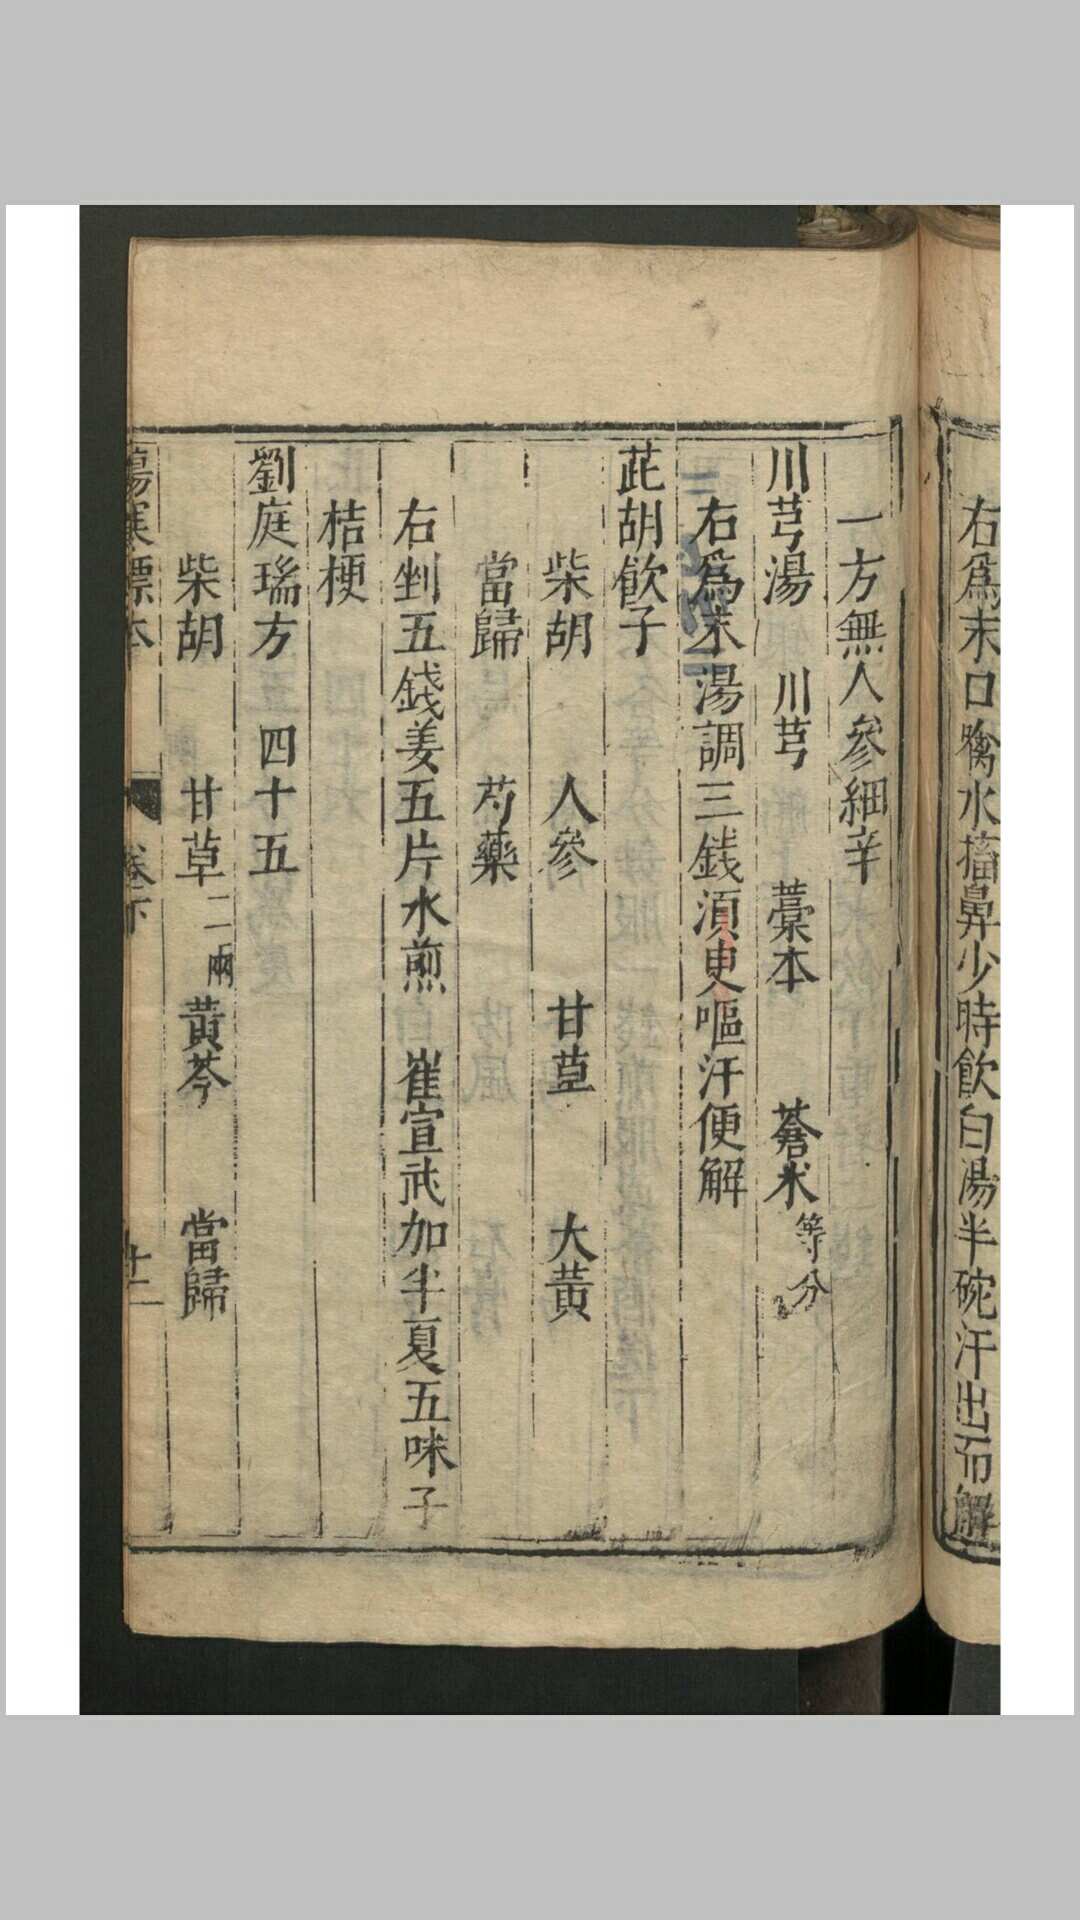 右爲末口噙水搐鼻少時飲白湯半碗汗出而解
一方無人參細辛
川芎湯 川芎 藁本 蒼术等分
右爲末湯調三錢湏㬰嘔汗便解
茈胡飲子
柴胡 人參 甘草 大黄
當歸 芍藥
右剉五錢姜五片水煎 崔宣武加半夏五味子
桔梗
劉庭瑞方 四十五
柴胡 甘草二兩 黄芩 當歸
傷寒標本 卷下 十二